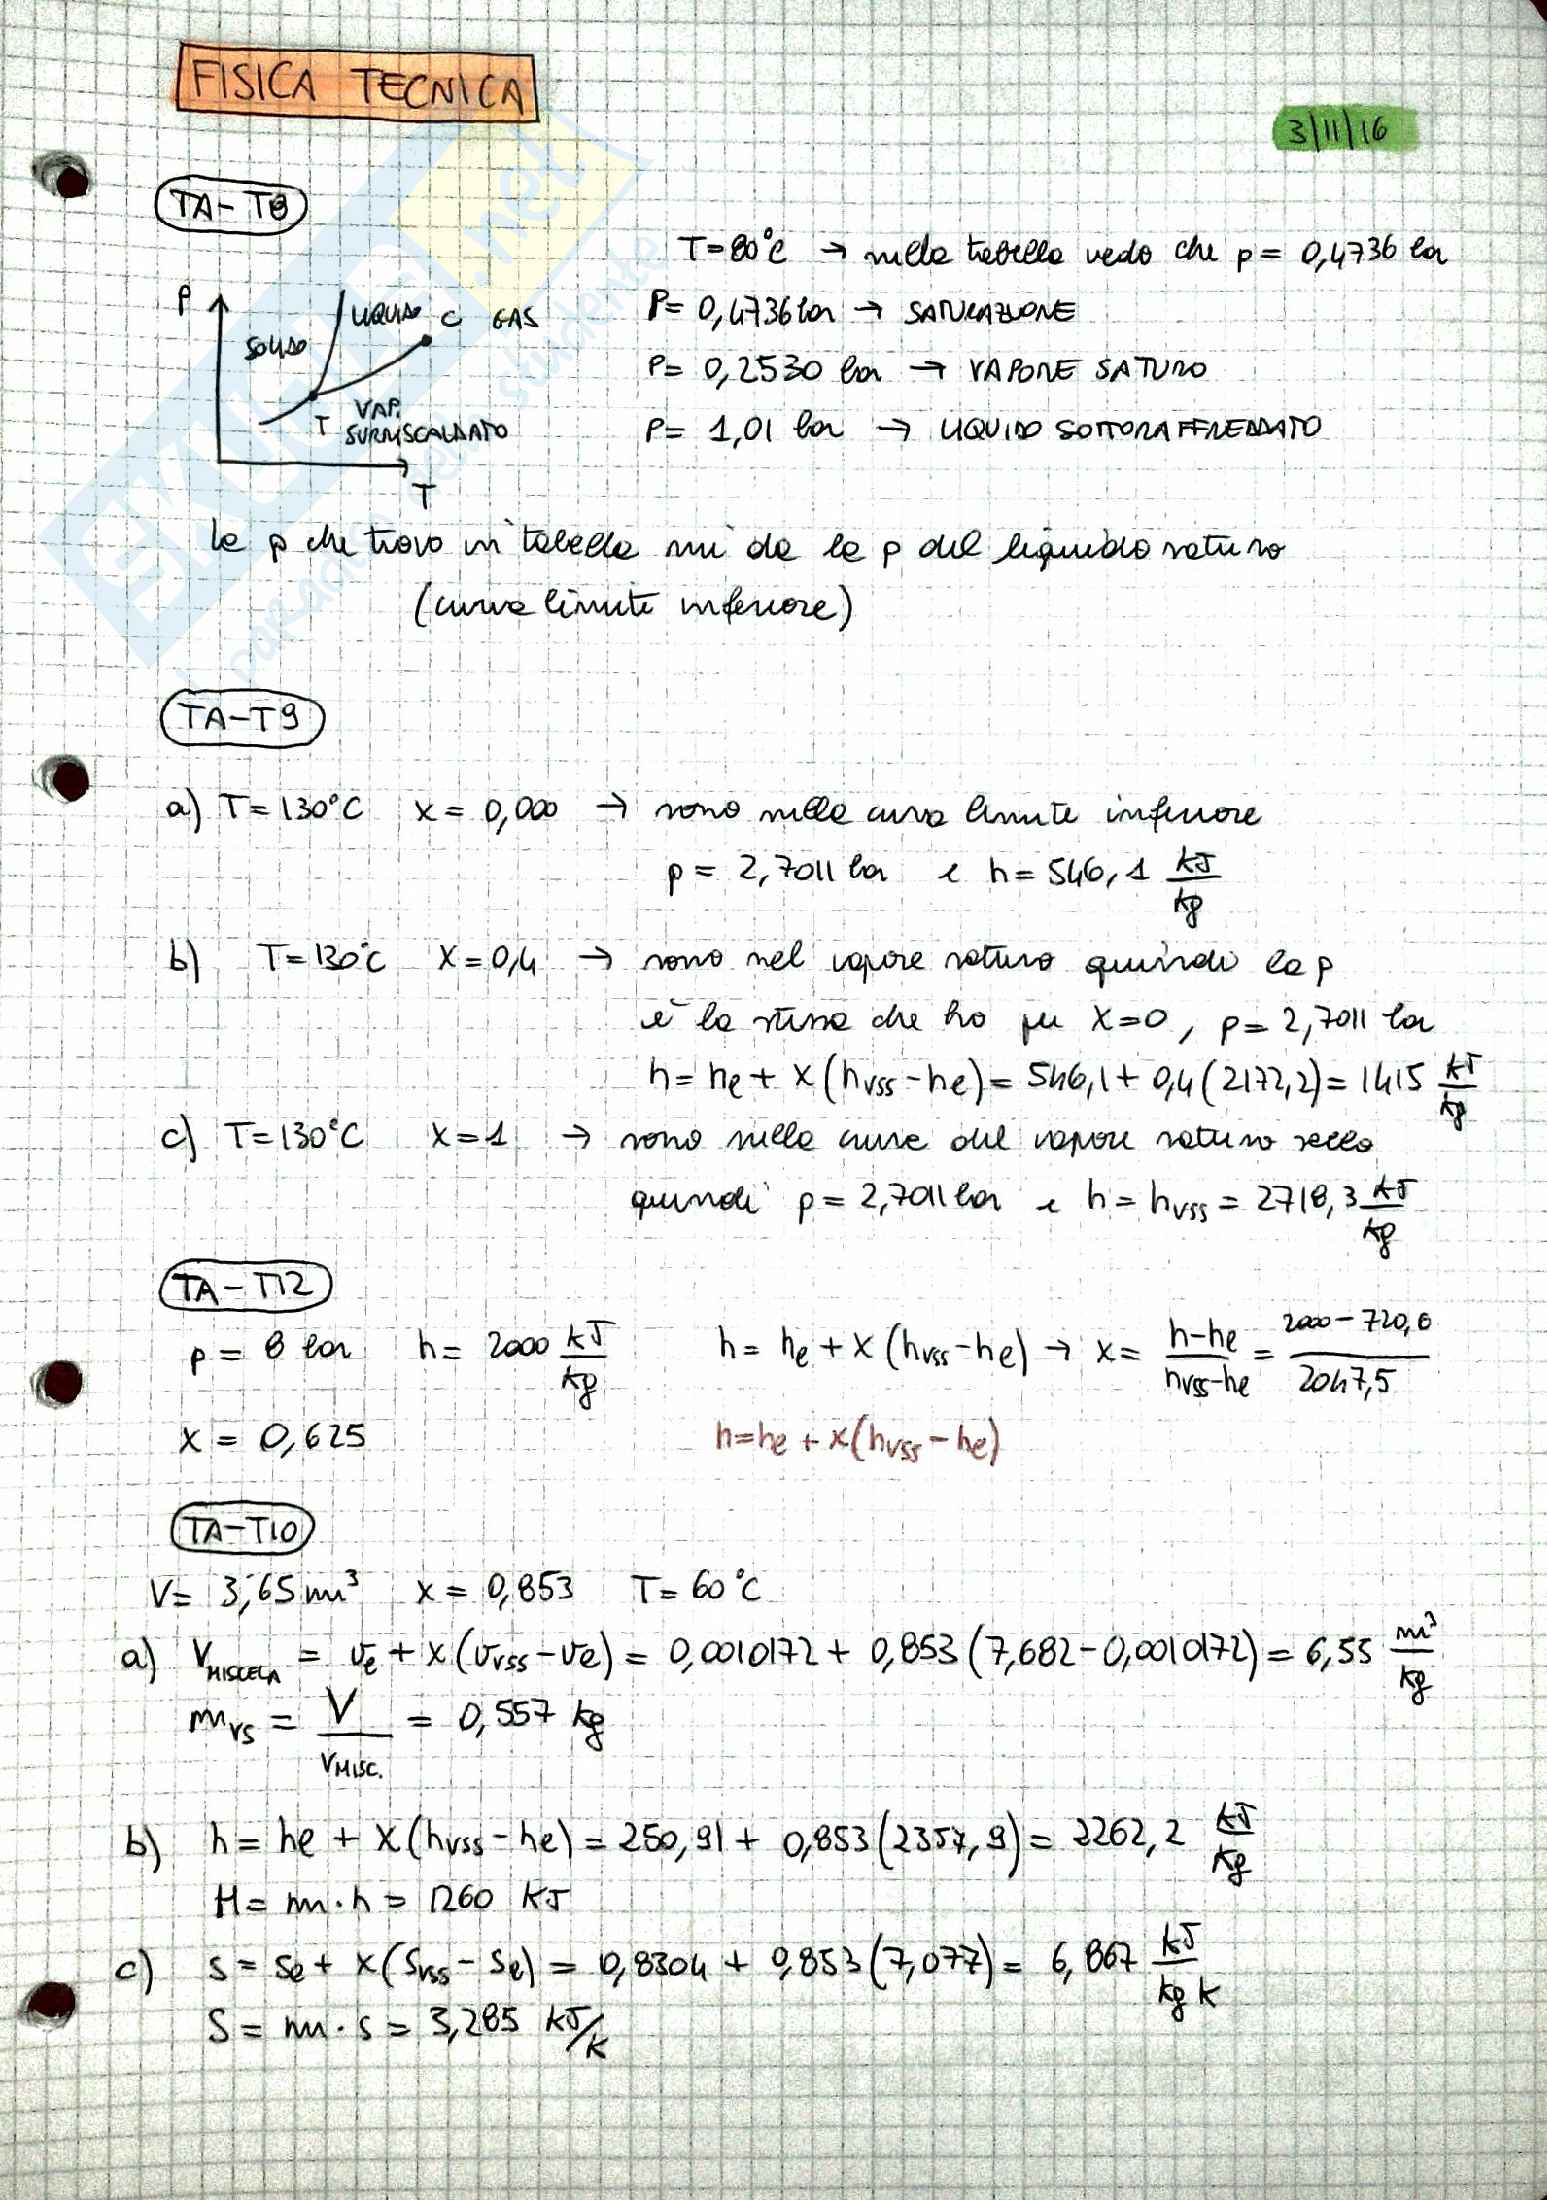 FISICA TECNICA
3/11/16
TA-T8
T=80°C → nella tabella vedo che p = 0,4736 bar
P= 0,4736 bar → SATURAZIONE
P= 0,2530 bar → VAPORE SATURO
P= 1,01 bar → LIQUIDO SOTTORAFFREDDATO
P
SOLIDO
LIQUIDO
C
GAS
T
VAP.
SURRISCALDATO
T
la p che trovo in tabella mi da la p del liquido saturo
(curva limite inferiore)
TA-T9
a) T=130°C x=0,000 → sono nella curva limite inferiore
p = 2,7011 bar e h= 546,1 kJ/kg
b) T=130°C x=0,4 → sono nel vapore saturo quindi la p
è la stessa che ho per x=0, p= 2,7011 bar
h= he + x(hvss-he)= 546,1 + 0,4(2172,2)= 1415 kJ/kg
c) T=130°C x=1 → sono nella curva del vapore saturo secco
quindi p=2,7011 bar e h= hvss = 2718,3 kJ/kg
TA-T12
p= 8 bar h= 2000 kJ/kg h= he + x(hvss-he) → x= h-he/hvss-he = 2000-720,6/2047,5
x = 0,625
h=he + x(hvss-he)
TA-T10
V= 3,65 m³ x= 0,853 T= 60°C
a) VMISCELA = ve + x(vvss-ve) = 0,0010172 + 0,853(7,682-0,0010172)= 6,55 m³/kg
mvs = V/VMISC. = 0,557 kg
b) h= he + x(hvss-he)= 250,91 + 0,853(2357,9)= 2262,2 kJ/kg
H= m·h= 1260 kJ
c) s= se + x(svss-se) = 0,8304 + 0,853(7,077)= 6,867 kJ/kg K
S= m·s = 3,285 kJ/K
EXTUS.net